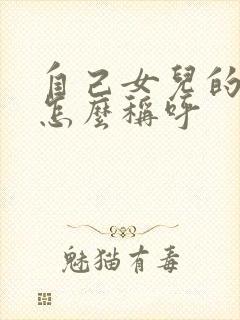 自己女兒的
怎麼稱呼
魅猫有毒